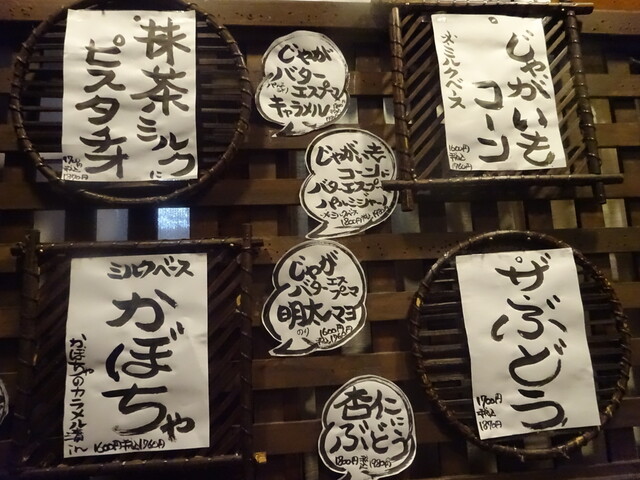 抹茶ミルクに
ピスタチオ
1700円
税込
1870円
じゃが
バター
エスプーマ
キャラメル
じゃがいも
コーン
※ミルクベース
1600円
税込
1760円
じゃがいも
コーンに
バタエスプーマ
パルミジャーノ
ミルクベース
1800円
ミルクベース
かぼちゃ
かぼちゃのカラメル漬in
1600円 税込1760円
じゃが
バターエスプーマ
明太マヨ
のり
1600円
税込1760円
ザぶどう
1700円
税込
1870円
杏仁に
ぶどう
1800円 税込 1980円